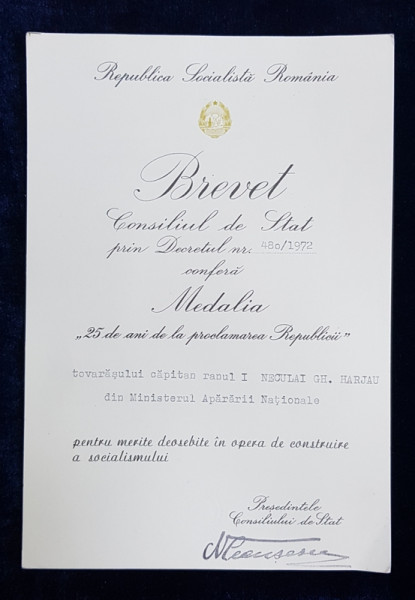 Republica Socialistă România
Brevet
Consiliul de Stat
prin Decretul nr. 480/1972
conferă
Medalia
„25 de ani de la proclamarea Republicii”
tovarășului căpitan ranul I NECULAI GH. HARJAU
din Ministerul Apărării Naționale
pentru merite deosebite în opera de construire
a socialismului
Președintele
Consiliului de Stat
NCeaușescu